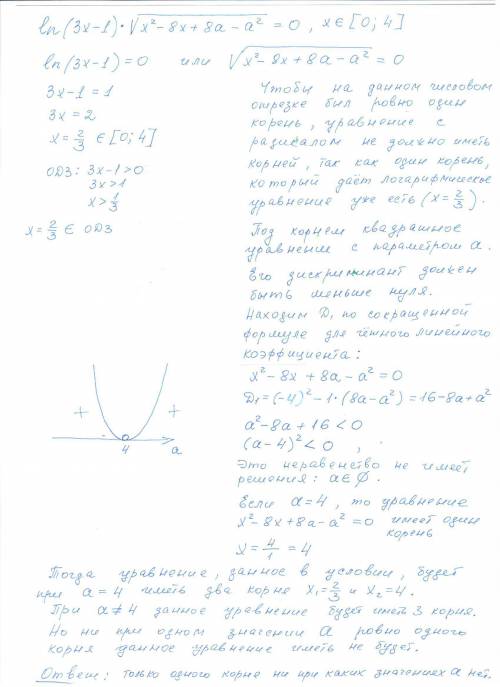 ln(3x-1)·√(x²-8x+8a-a²) = 0 , x∈[0; 4]
ln(3x-1)=0 или √(x²-8x+8a-a²) = 0
3x-1=1
3x=2
x=2/3 ∈[0; 4]
ОДЗ: 3x-1>0
3x>1
x>1/3
x=2/3 ∈ ОДЗ
Чтобы на данном числовом
отрезке был ровно один
корень, уравнение с
радикалом не должно иметь
корней, так как один корень,
который даёт логарифмическое
уравнение уже есть (x=2/3).
Под корнем квадратное
уравнение с параметром a.
Его дискриминант должен
быть меньше нуля.
Находим D₁ по сокращенной
формуле для чётного линейного
коэффициента:
x²-8x+8a-a²=0
D₁=(-4)²-1·(8a-a²)=16-8a+a²
a²-8a+16<0
(a-4)²<0 ,
Это неравенство не имеет
решения: a∈∅.
+ +
4 a
Если a=4, то уравнение
x²-8x+8a-a²=0 имеет один
корень
x=4/1=4
Тогда уравнение, данное в условии, будет
при a=4 иметь два корня x₁=2/3 и x₂=4.
При a≠4 данное уравнение будет иметь 3 корня.
Но ни при одном значении a ровно одного
корня данное уравнение иметь не будет.
Ответ: только одного корня ни при каких значениях a нет.